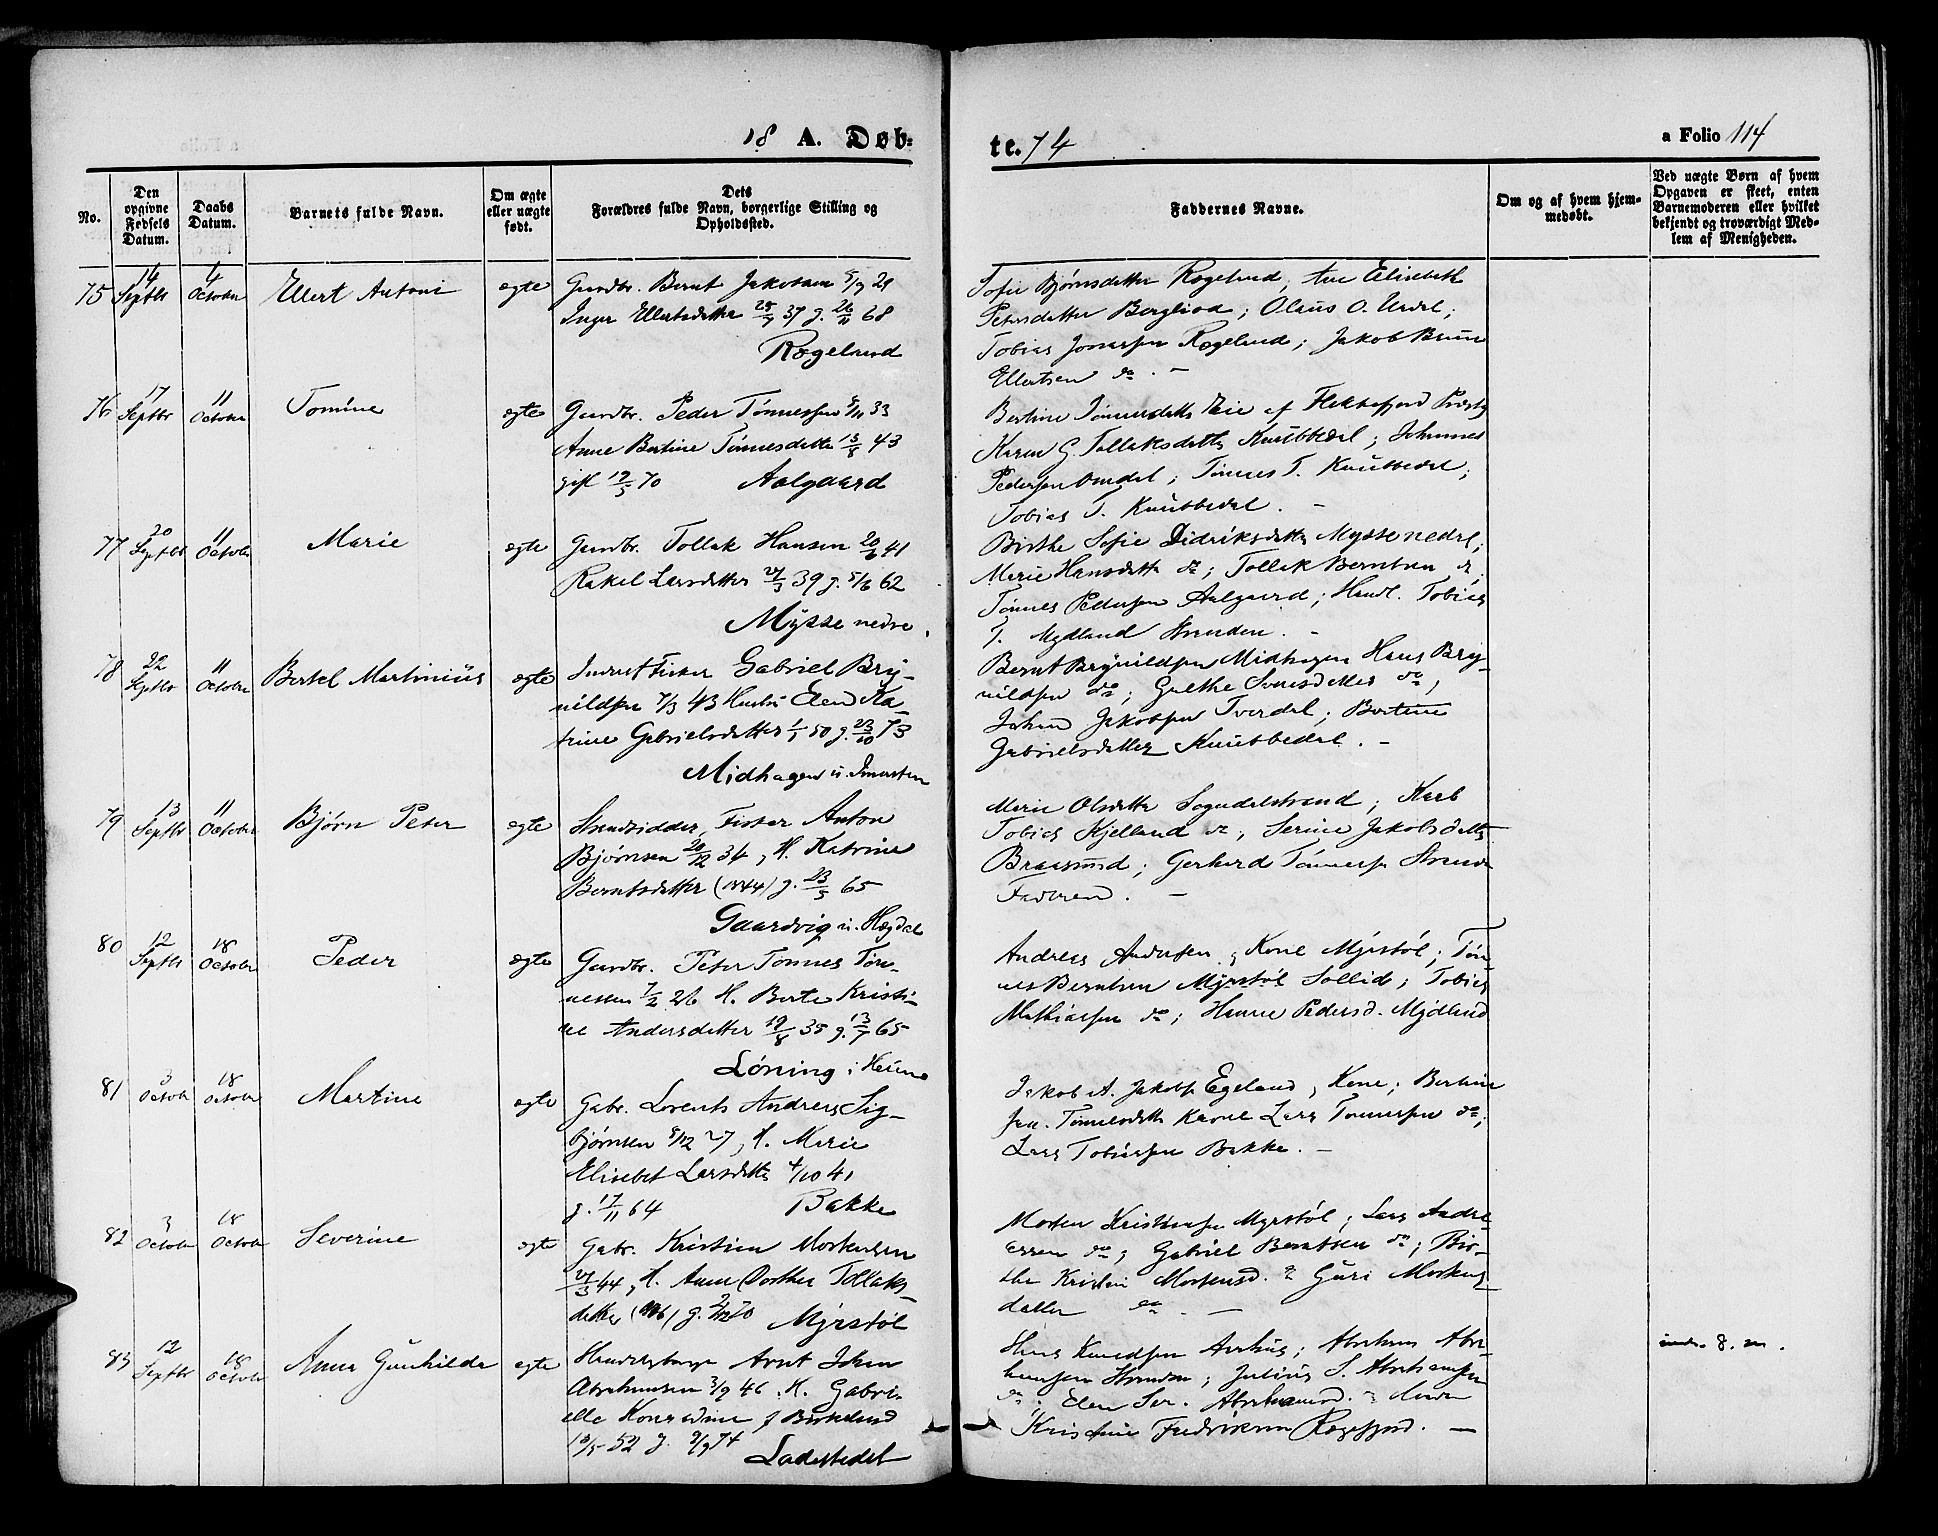 18 A. Døb-
te. 74
a Folio 114
No.
Den opgivne Fødsels Datum.
Daabs Datum.
Barnets fulde Navn.
Om ægte eller uægte født.
Dets Forældres fulde Navn, borgerlige Stilling og Opholdssted.
Faddernes Navne.
Om og af hvem hjemmedøbt.
Ved uægte Børn af hvem Opgaven er skeet, enten Barnemoderen eller hvilket bekjendt og troværdigt Medlem af Menigheden.
75 14 Septbr 4 October Ellert Antoni ægte Gaardbr. Bernt Jakobsen 8/9 29
Inger Ellertsdatter 25/7 37 g. 26/11 68
Rægeland
Sofie Bjørnsdatter Rægeland, Ane Elisabeth
Petersdatter Bergliod; Olaus O. Urdal;
Tobias Jonassen Rægeland; Jakob Bruun
Ellertsen do. —
76 17 Septbr 11 October Tomine ægte Gaardbr. Peder Tønnessen 8/11 33
Anne Bertine Tønnesdatter 13/8 43
gift 19/5 70 Aalgaard
Bertine Tønnesdatter Eie af Flekkefjord Præstg
Karen G. Tollaksdatter Knubbedal; Johannes
Pedersen Omdal; Tønnes T. Knubbedal;
Tobias T. Knubbedal. —
77 20 Septbr 11 October Marie ægte Gaardbr. Tollak Hansen 20/6 41
Rakel Larsdatter 27/3 39 g. 5/6 62
Mysse nedre.
Birthe Sofie Didriksdatter Mysse nedre;
Marie Hansdatter do; Tollak Berntsen do,
Tønnes Pedersen Aalgaard; Handl. Tobias
T. Mydland Stranden. —
78 22 Septbr 11 October Bertel Martinius ægte Inderst Fisker Gabriel Bry-
nildsen 7/3 43 Hustru Elen Ka-
trine Gabrielsdatter 1/1 50 g. 23/10 73
Midhagen u. Immersten
Bernt Brynildsen Midhagen Hans Bry-
nildsen do; Grethe Svensdatter do,
Johan Jakobsen Tverdal; Bertine
Gabrielsdatter Knubbedal. —
79 13 Septbr 11 October Bjørn Peter ægte Strandsidder, Fisker Anton
Bjørnsen 20/12 34, H. Katrine
Berntsdatter (1844) g. 23/5 65
Gaardvig u. Hægdal
Marie Olsdatter Sogndalstrand; Karl
Tobias Kjelland do, Serine Jakobsdatter
Braasund; Gerhard Tønnessen Strand
Faderen. —
80 12 Septbr 18 October Peder ægte Gaardbr. Peter Tønnes Tøn-
nessen 7/2 26 H. Berte Kristi-
ne Andersdatter 19/8 35 g. 13/7 65
Løning i Heiene
Andreas Andersen, Kone Myrstøl; Tøn-
nes Berntsen Myrstøl Sollid; Tobias
Mathiassen do; Hanne Pedersd. Mydland
81 3 October 18 October Martine ægte Gabr. Lorents Andreas Sig-
bjørnsen 8/12 27, H. Marie
Elisabet Larsdatter 4/10 41
g. 17/11 64 Bakke
Jakob A. Jakobs Egeland, Kone; Bertine
fru. Tønnesdatter Kone Lars Tønnessen do;
Lars Tobiassen Bakke. —
82 3 October 18 October Severine ægte Gabr. Kristian Mortensen
27/3 44, H. Anne Dorthea Tollaks
datter g. 2/12 70 Myrstøl
Morten Kristiansen Myrstøl; Lars Andre-
assen do; Gabriel Berntsen do; Bir-
the Kristin Mortensd. do Guri Mortens
datter do. —
83 12 Septbr 18 October Anna Gunhilda ægte Handelsborger Arnt Johan
Abrahamsen 3/9 46. H. Gabri-
elle Konradine f Birkeland
10/5 52 g. 9/9 74 Ladestedet
Hans Knudsen Aarhus; Abraham Abra-
hamsen Stranden; Julius S. Abrahamsen
do; Elen Ser. Abrahamsd. do
Kristine Fredriksen Rægefjord. —
indm. 8. m.